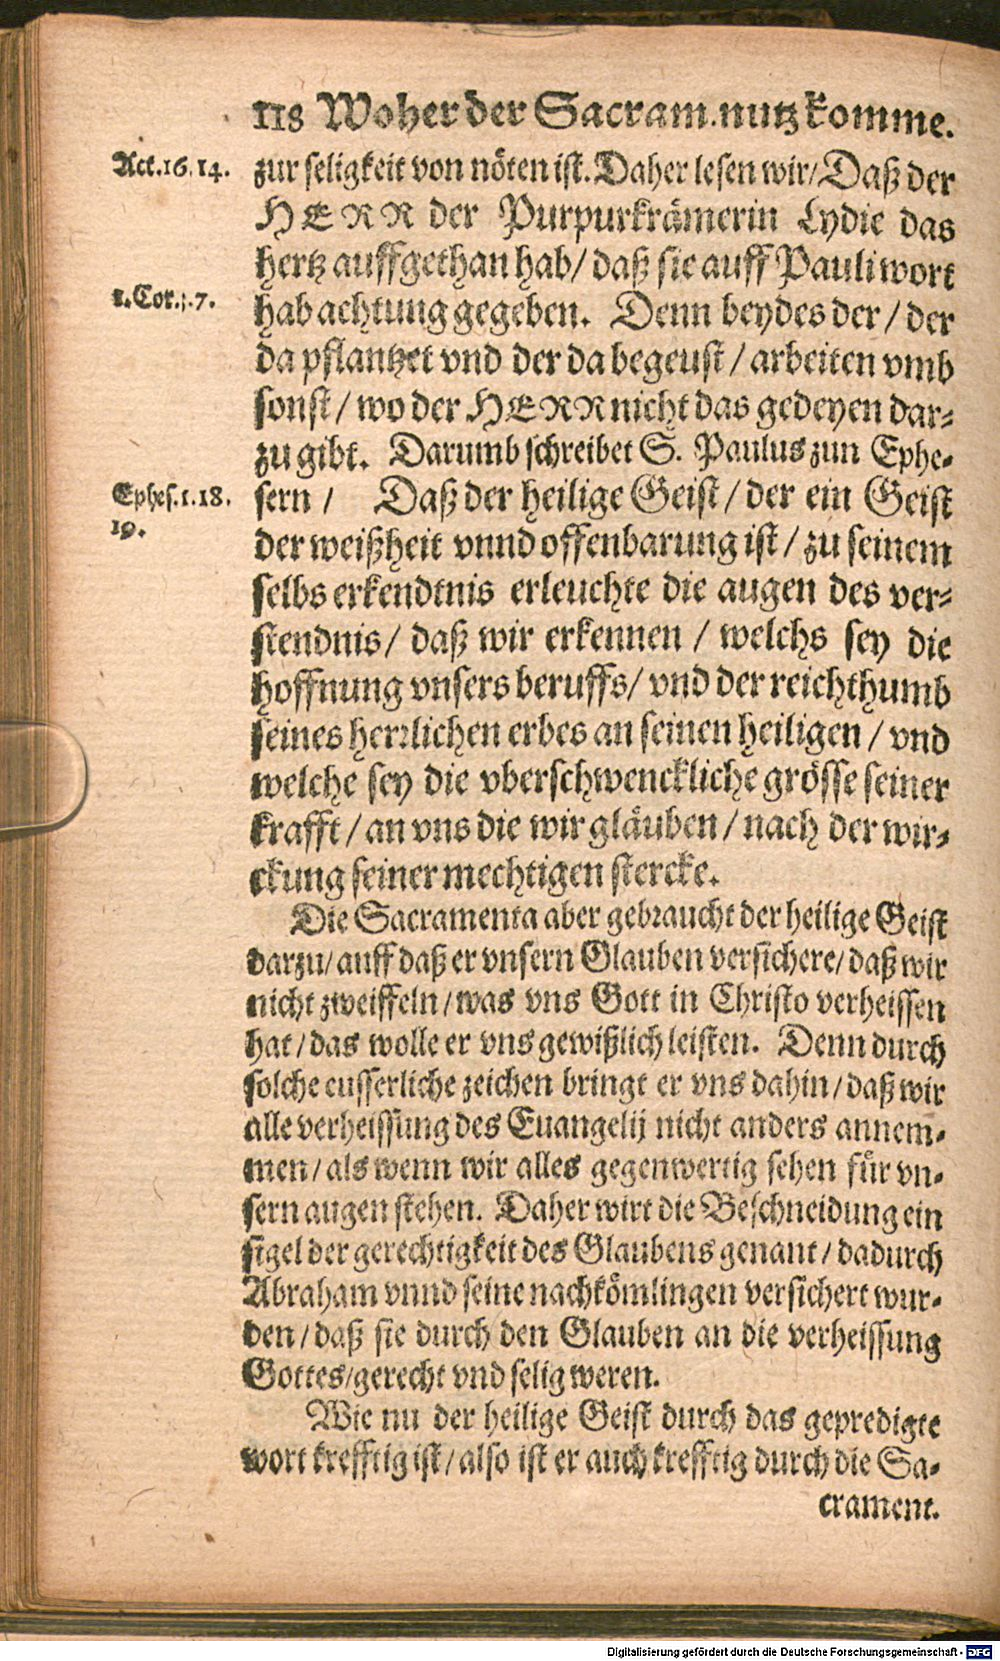 118 Woher der Sacram. nutz komme.
Act. 16. 14. zur seligkeit von nöten ist. Daher lesen wir/ Daß der
HERR der Purpurkrämerin Lydie das
hertz auffgethan hab/ daß sie auff Pauli wort
1. Cor. 3. 7. hab achtung gegeben. Denn beydes der / der
da pflantzet vnd der da begeust / arbeiten vmb
sonst / wo der HERR nicht das gedeyen dar-
zu gibt. Darumb schreibet S. Paulus zun Ephe-
Ephes. 1. 18. sern / Daß der heilige Geist / der ein Geist
19. der weißheit vnnd offenbarung ist / zu seinem
selbs erkendtnis erleuchte die augen des ver-
stendnis / daß wir erkennen / welchs sey die
hoffnung vnsers beruffs/ vnd der reichthumb
seines herrlichen erbes an seinen heiligen / vnd
welche sey die vberschwenckliche grösse seiner
krafft / an vns die wir gläuben / nach der wir-
ckung seiner mechtigen stercke.
Die Sacramenta aber gebraucht der heilige Geist
darzu/ auff daß er vnsern Glauben versichere/ daß wir
nicht zweiffeln / was vns Gott in Christo verheissen
hat / das wolle er vns gewißlich leisten. Denn durch
solche eusserliche zeichen bringt er vns dahin / daß wir
alle verheissung des Euangelij nicht anders annem-
men / als wenn wir alles gegenwertig sehen für vn-
sern augen stehen. Daher wirt die Beschneidung ein
sigel der gerechtigkeit des Glaubens genant / dadurch
Abraham vnnd seine nachkömlingen versichert wur-
den / daß sie durch den Glauben an die verheissung
Gottes/ gerecht vnd selig weren.
Wie nu der heilige Geist durch das gepredigte
wort krefftig ist / also ist er auch krefftig durch die Sa-
crament.
Digitalisierung gefördert durch die Deutsche Forschungsgemeinschaft - DFG